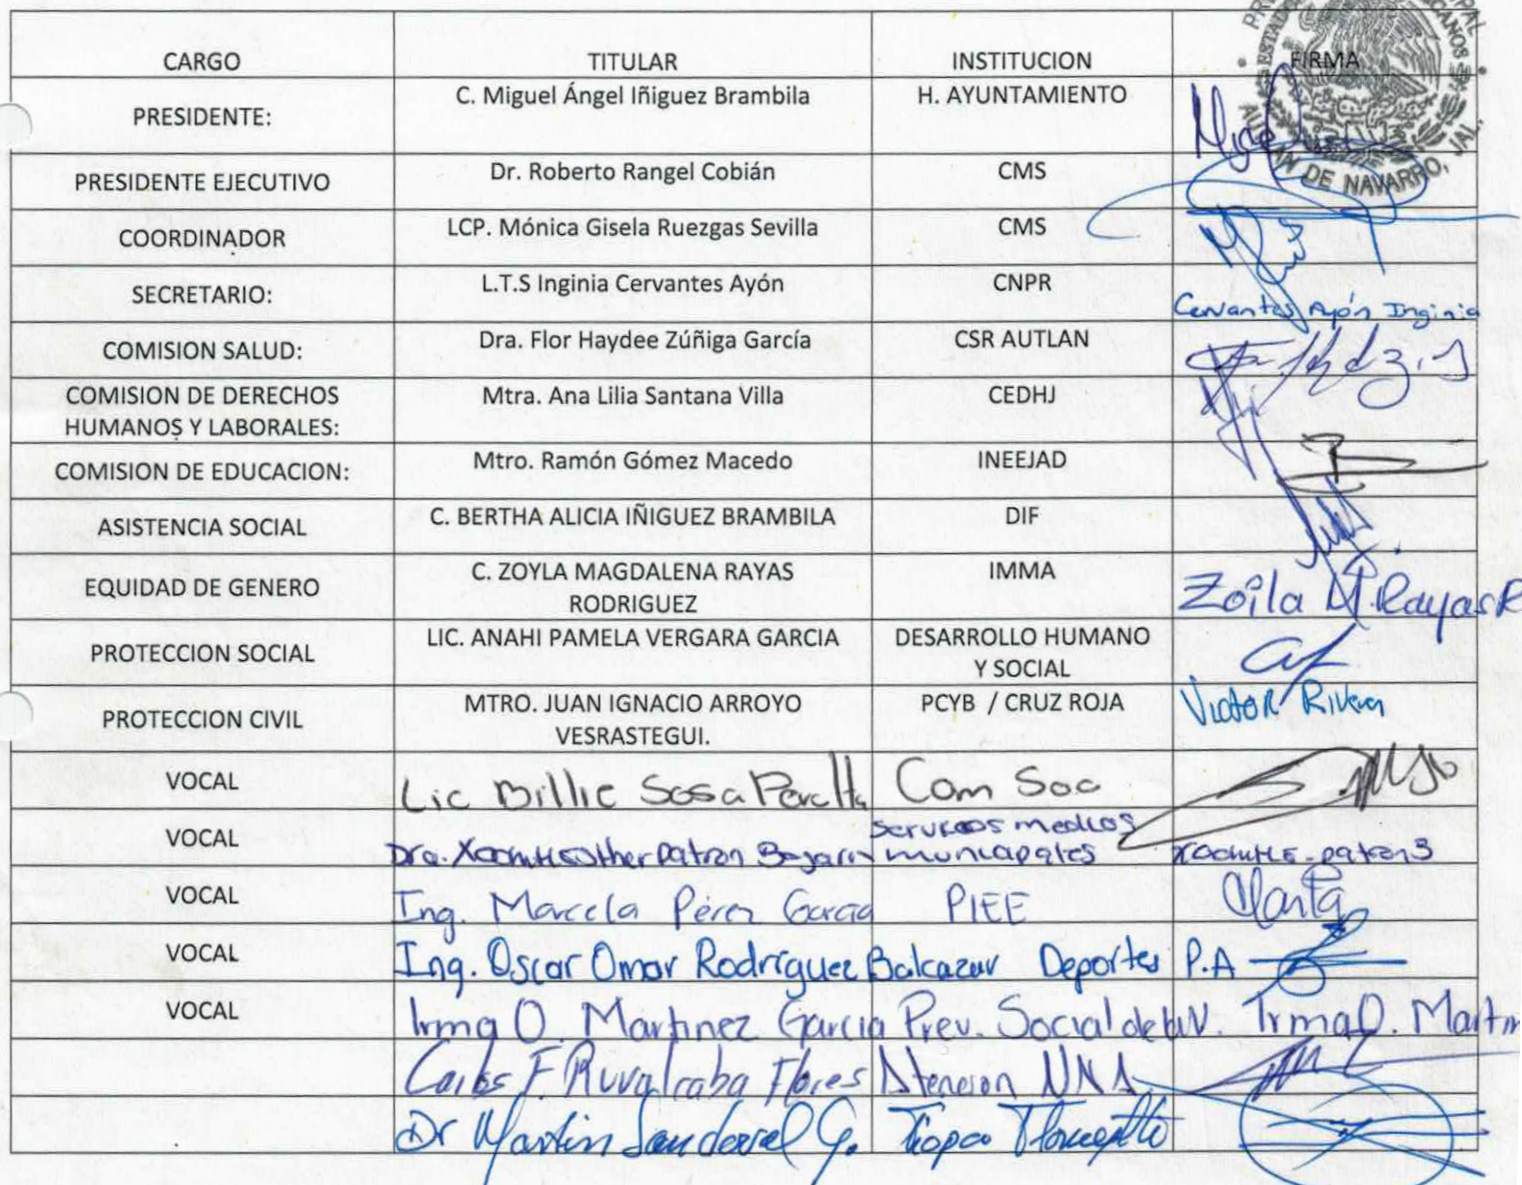 CARGO TITULAR INSTITUCION FIRMA
PRESIDENTE: C. Miguel Ángel Iñiguez Brambila H. AYUNTAMIENTO
DE NAVARRO, JAL.
PRESIDENTE EJECUTIVO Dr. Roberto Rangel Cobián CMS
COORDINADOR LCP. Mónica Gisela Ruezgas Sevilla CMS
SECRETARIO: L.T.S Inginia Cervantes Ayón CNPR Cervantes Ayón Inginia
COMISION SALUD: Dra. Flor Haydee Zúñiga García CSR AUTLAN
COMISION DE DERECHOS
HUMANOS Y LABORALES: Mtra. Ana Lilia Santana Villa CEDHJ
COMISION DE EDUCACION: Mtro. Ramón Gómez Macedo INEEJAD
ASISTENCIA SOCIAL C. BERTHA ALICIA IÑIGUEZ BRAMBILA DIF
EQUIDAD DE GENERO C. ZOYLA MAGDALENA RAYAS
RODRIGUEZ IMMA Zoila M. Rayas R
PROTECCION SOCIAL LIC. ANAHI PAMELA VERGARA GARCIA DESARROLLO HUMANO
Y SOCIAL
PROTECCION CIVIL MTRO. JUAN IGNACIO ARROYO
VESRASTEGUI. PCYB / CRUZ ROJA Victor Rivera
VOCAL Lic Billie Sosa Peralta Com Soc
VOCAL Dra. Xochitl Esther Patron servicios medicos
municipales
VOCAL Ing. Marcela Pérez Garcia PIEE
VOCAL Ing. Oscar Omar Rodríguez Balcazar Deportes P.A
VOCAL Irma O. Martinez Garcia Prev. Social de la V. Irma O. Martin
Carlos F. Ruvalcaba Flores Atencion NNA
Dr Martin Sandoval G.